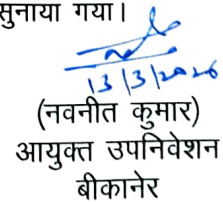 सुनाया गया।
13/3/2026
(नवनीत कुमार)
आयुक्त उपनिवेशन
बीकानेर